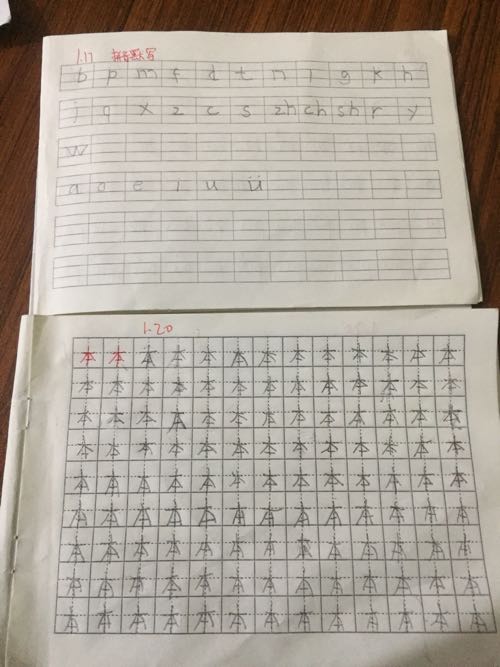 1.17 拼音默写
b p m f d t n l g k h
j q x z c s zh ch sh r y
w
a o e i u ü
1.20
本 本 本 本 本 本 本 本 本 本 本 本 本
本 本 本 本 本 本 本 本 本 本 本 本 本
本 本 本 本 本 本 本 本 本 本 本 本 本
本 本 本 本 本 本 本 本 本 本 本 本 本
本 本 本 本 本 本 本 本 本 本 本 本 本
本 本 本 本 本 本 本 本 本 本 本 本 本
本 本 本 本 本 本 本 本 本 本 本 本 本
本 本 本 本 本 本 本 本 本 本 本 本 本
本 本 本 本 本 本 本 本 本 本 本 本 本